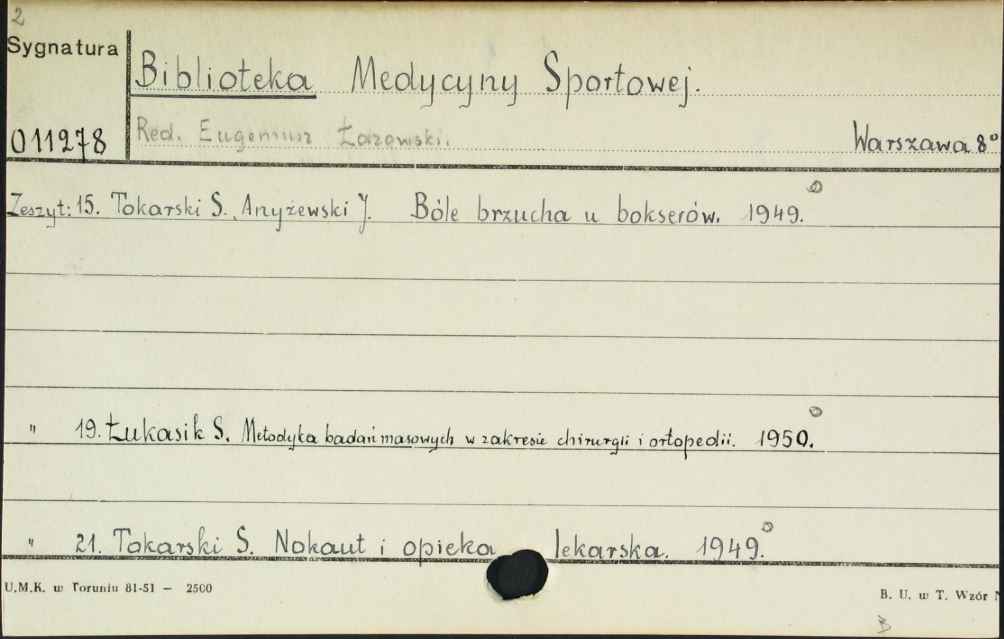 2
Sygnatura
Biblioteka Medycyny Sportowej.
011278
Red. Eugeniusz Łazowski.
Warszawa 8°
Zeszyt: 15. Tokarski S., Anyżewski J. Bóle brzucha u bokserów. 1949.
" 19. Łukasik S. Metodyka badań masowych w zakresie chirurgii i ortopedii. 1950.
" 21. Tokarski S. Nokaut i opieka lekarska. 1949.
U.M.K. w Toruniu 81-51 — 2500
B. U. w T. Wzór
B